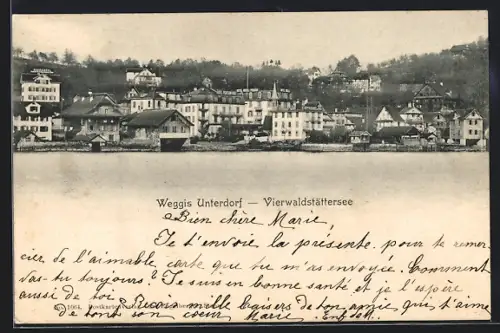 Weggis Unterdorf — Vierwaldstättersee
Bien chère Marie
Je t'envoie la présente pour te remer
cier de l'aimable carte que tu m'as envoyée. Comment
vas-tu toujours? Je suis en bonne santé et je l'espère
aussi de toi. Reçois mille baisers de ton amie, qui t'aime
de tout son coeur Marie